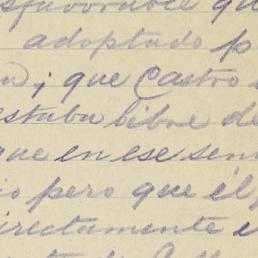 sfavorable qu
adoptado p
n; que Castro
estaba libre de
que en ese sen
io pero que él
directamente e